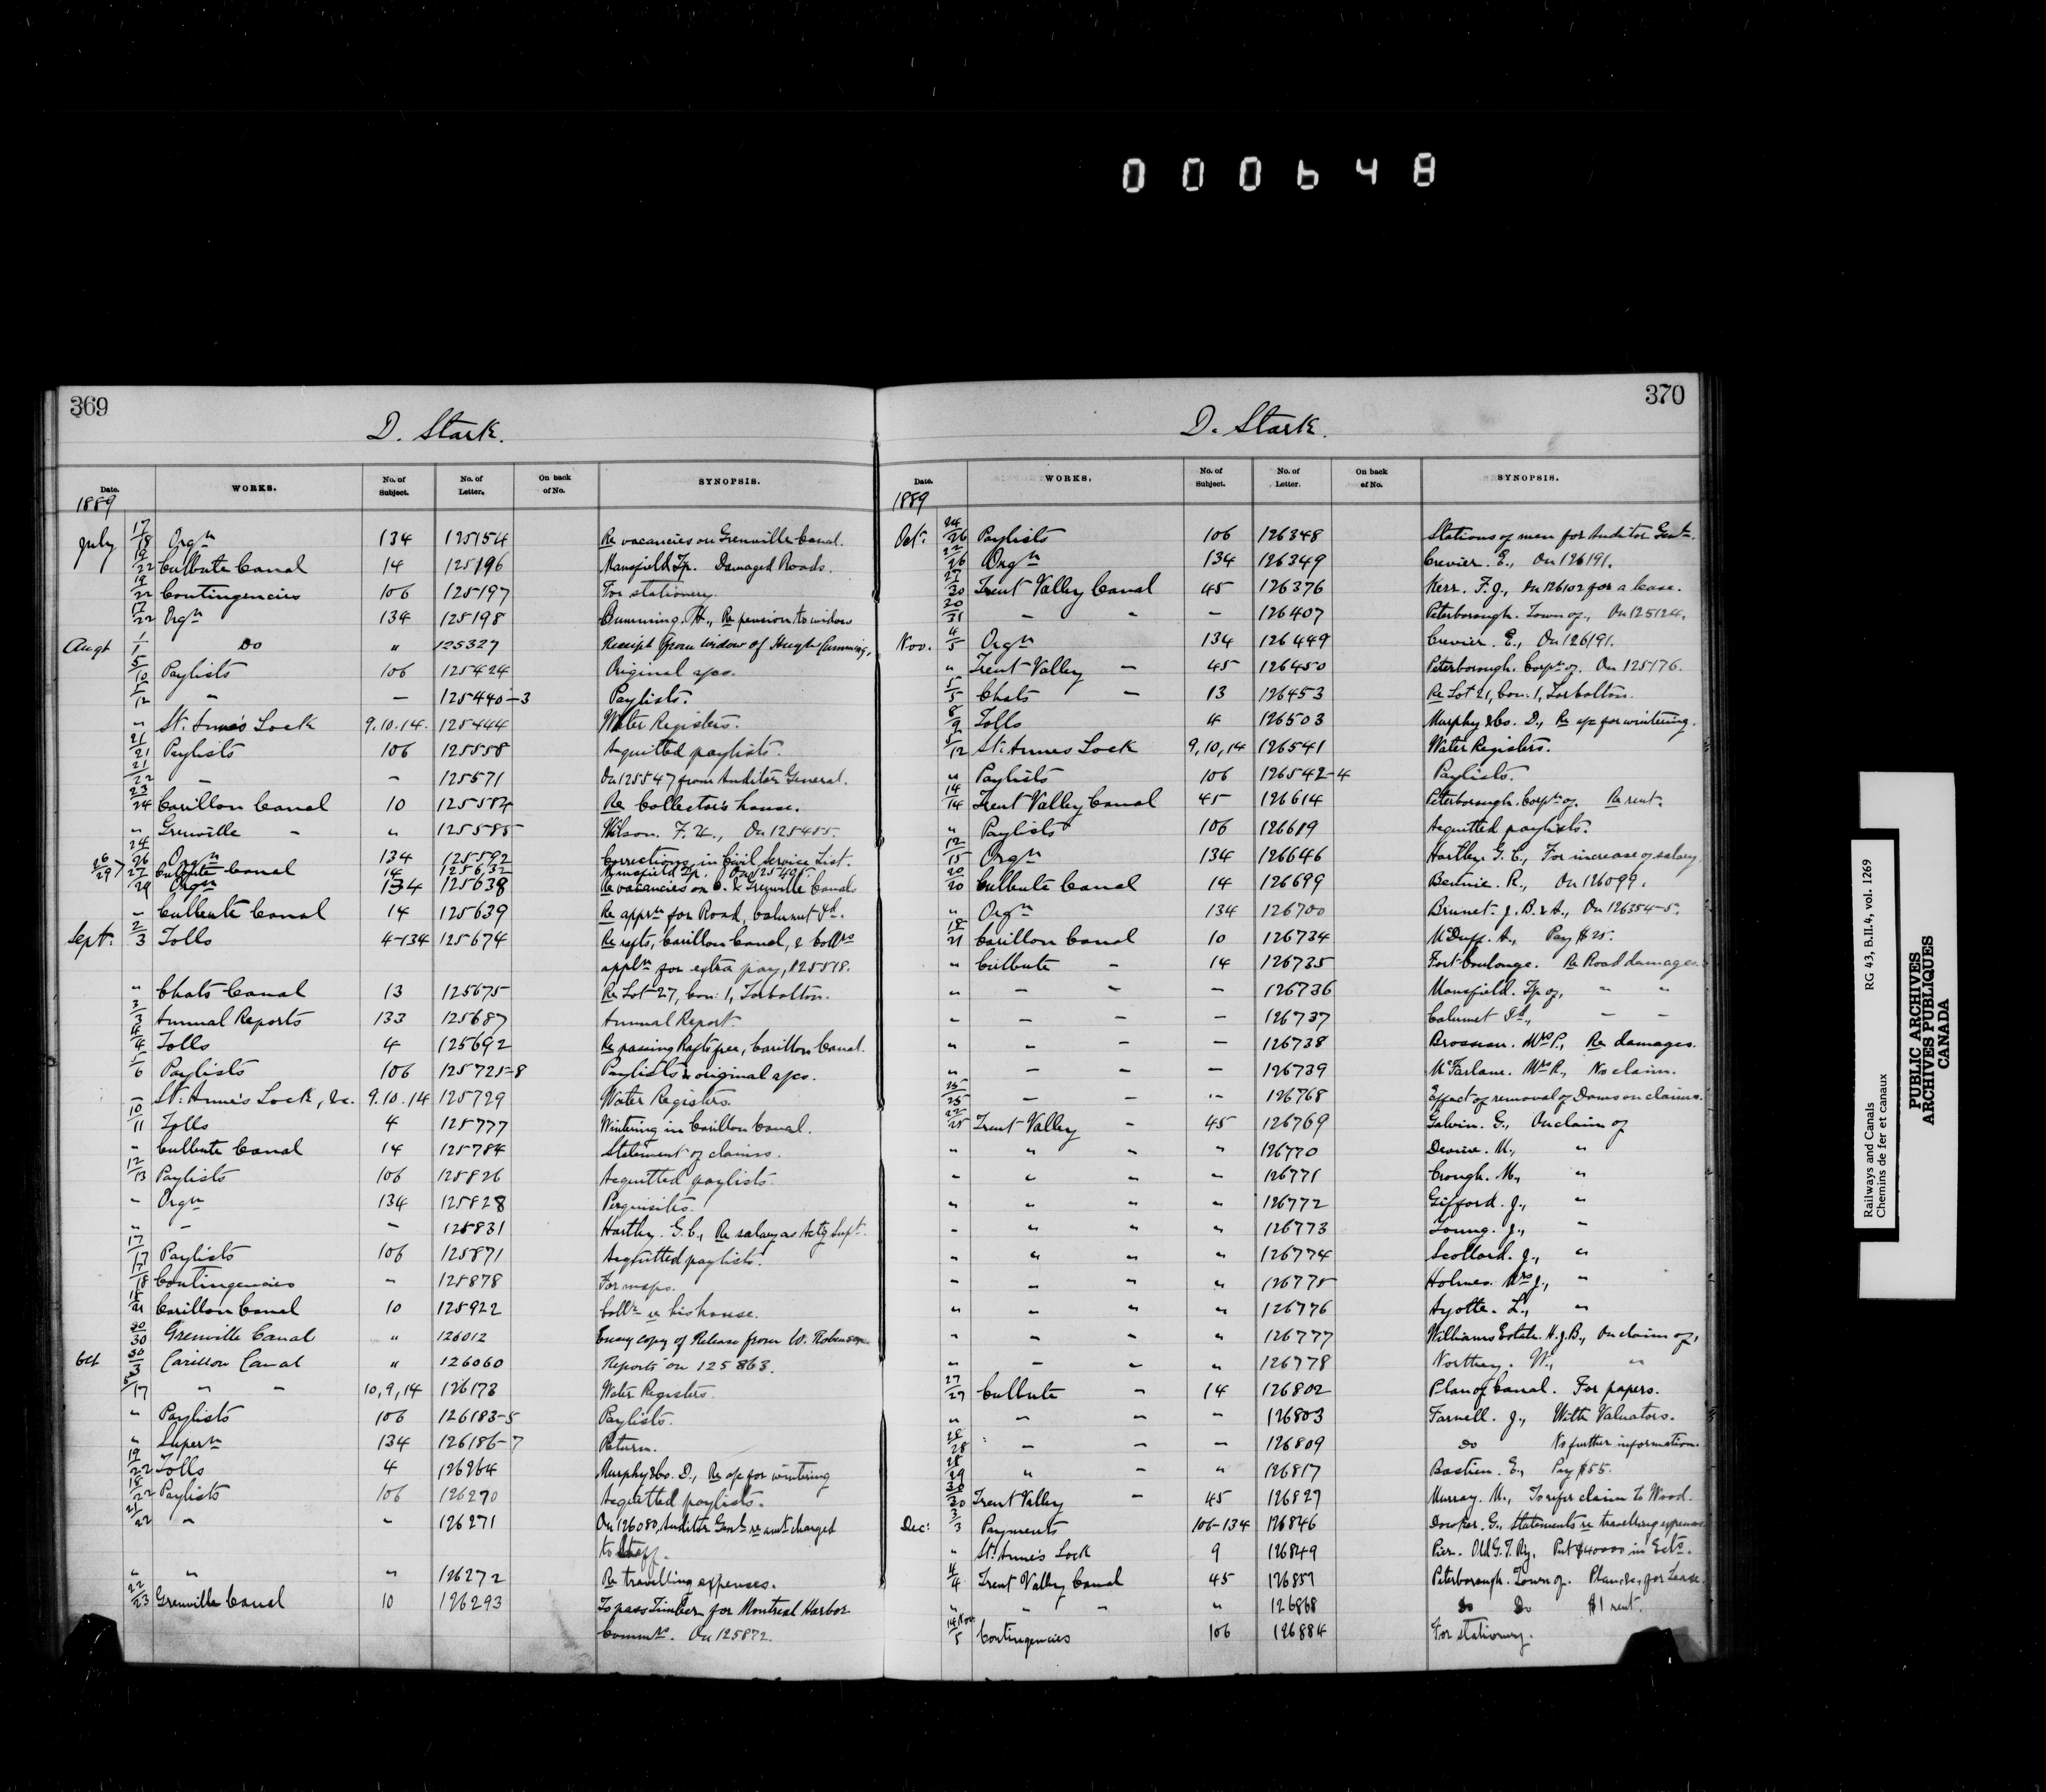 000648
369
D. Stark.
Date. WORKS. No. of Subject. No. of Letter. On back of No. SYNOPSIS.
1889
July 17/18 Orgn 134 125154 Re vacancies on Grenville Canal.
19/22 Culbute Canal 14 125196 Mansfield Tp. Damaged Roads.
19/22 Contingencies 106 125197 For stationery.
17/22 Orgn 134 125198 Cumming. H., Re pension to widow
Augt 1/1 Do " 125327 Receipt from widow of Hugh Cumming.
5/10 Paylists 106 125424 Original a/cs.
5/12 " — 125440-3 Paylists.
" St. Anne's Lock 9.10.14. 125444 Water Registers.
21/21 Paylists 106 125558 Acquitted paylists.
21/22 - - 125571 On 125547 from Auditor General.
23/24 Carillon Canal 10 125584 Re Collector's house.
" Grenville - " 125585 Wilson. F. H., On 125455.
24/26 Orgn 134 125592 Corrections in Civil Service List.
26/29 27 Culbute Canal 14 125632 Mansfield Tp. On 125405.
/29 Orgn 134 125638 Re vacancies on C. & Grenville Canals
- Culbute Canal 14 125639 Re apprn for Road, Calumet Id.
Sept. 2/3 Tolls 4-134 125674 Re rafts, Carillon Canal, & Collrs
appln for extra pay, 125518.
" Chats Canal 13 125675 Re Lot 27, Con: 1, Torbolton.
3/3 Annual Reports 133 125687 Annual Report.
4/4 Tolls 4 125692 Re passing Rafts free, Carillon Canal.
5/6 Paylists 106 125725-8 Paylists & original a/cs.
- St. Anne's Lock, &c. 9.10.14 125729 Water Registers.
10/11 Tolls 4 125777 Wintering in Carillon Canal.
" Culbute Canal 14 125784 Statement of claims.
12/13 Paylists 106 125826 Acquitted paylists.
- Orgn 134 125828 Perquisites.
" - - 125831 Hartley. G. C., Re salary as Actg Supt.
17/17 Paylists 106 125871 Acquitted paylists.
17/18 Contingencies - 125878 For maps.
18/21 Carillon Canal 10 125922 Collr re his house.
30/30 Grenville Canal " 126012 copy of Release from W. Robinson
Oct 30/3 Carillon Canal " 126060 Reports on 125863.
/17 " - 10,9,14 126173 Water Registers.
" Paylists 106 126183-5 Paylists.
" Supern 134 126186-7 Return.
19/22 Tolls 4 126264 Murphy & Co. D., Re a/c for wintering
18/22 Paylists 106 126270 Acquitted paylists.
21/22 " - 126271 On 126080, Auditor Genl re amt charged
to Staff.
" " " 126272 Re travelling expenses.
22/23 Grenville Canal 10 126293 To pass Timber for Montreal Harbor
Commrs. On 125872.
370
D. Stark.
Date. WORKS. No. of Subject. No. of Letter. On back of No. SYNOPSIS.
1889
Oct. 24/26 Paylists 106 126348 Stations of men for Auditor Genl.
22/26 Orgn 134 126349 Crevier. E., On 126191.
27/30 Trent Valley Canal 45 126376 Kerr. F. J., On 126102 for a lease.
20/31 - " - 126407 Peterborough. Town of, On 125124.
Nov. 4/5 Orgn 134 126449 Crevier. E., On 126191.
" Trent Valley - 45 126450 Peterborough. Corpn of. On 125176.
5/5 Chats - 13 126453 Re Lot 21, Con: 1, Torbolton.
8/9 Tolls 4 126503 Murphy & Co. D., Re a/c for wintering.
5/12 St. Annes Lock 9,10,14 126541 Water Registers.
" Paylists 106 126542-4 Paylists.
14/14 Trent Valley Canal 45 126614 Peterborough. Corpn of. Re rent.
" Paylists 106 126619 Acquitted paylists.
12/15 Orgn 134 126646 Hartley G. C., For increase of salary.
20/20 Culbute Canal 14 126699 R., On 126099.
" Orgn 134 126700 Brunet. J. B. & A., On 126354-5.
18/21 Carillon Canal 10 126734 McDuff. A., Pay $25.
" Culbute - 14 126735 Fort Coulonge. Re Road damages.
" - " - 126736 Mansfield. Tp of, " "
- - - - 126737 Calumet Id., - -
" " - - 126738 Brosnan. Mrs P., Re damages.
" - - - 126739 McFarlane. Mrs R., No claim.
25/25 - - " 126768 Effect of removal of Dams on claims.
22/25 Trent Valley - 45 126769 Galvin. G., On claim of
" " " " 126770 Devine. M., "
- " " - 126771 Crough. M., "
" " " " 126772 Gifford. J., "
- " " " 126773 Young. J., "
" " " " 126774 Scollard. J., "
" - - " 126775 Holmes. Mrs J., "
" " " " 126776 Ayotte. L., "
" - - " 126777 Williams Estate. H. J. B., On claim of,
" - - " 126778 Northey. W., "
27/27 Culbute - 14 126802 Plan of Canal. For papers.
" - - - 126803 Farrell. J., With Valuators.
28/28 - - - 126809 Do No further information.
28/29 " - " 126817 Bastien. E., Pay $55.
30/30 Trent Valley - 45 126827 Murray. M., To refer claim to Wood.
Dec: 3/3 Payments 106-134 126846 G., Statements re travelling expenses
" St. Anne's Lock 9 126849 Pier. Old G. T. Ry. Put $40000 in Ests.
4/4 Trent Valley Canal 45 126857 Peterborough. Town of. Plan &c, for Lease.
" " " " 126868 Do Do $1 rent.
14 Nov/5 Contingencies 106 126884 For stationery.
Railways and Canals RG 43, B.II.4, vol. 1269
Chemins de fer et canaux
PUBLIC ARCHIVES
ARCHIVES PUBLIQUES
CANADA